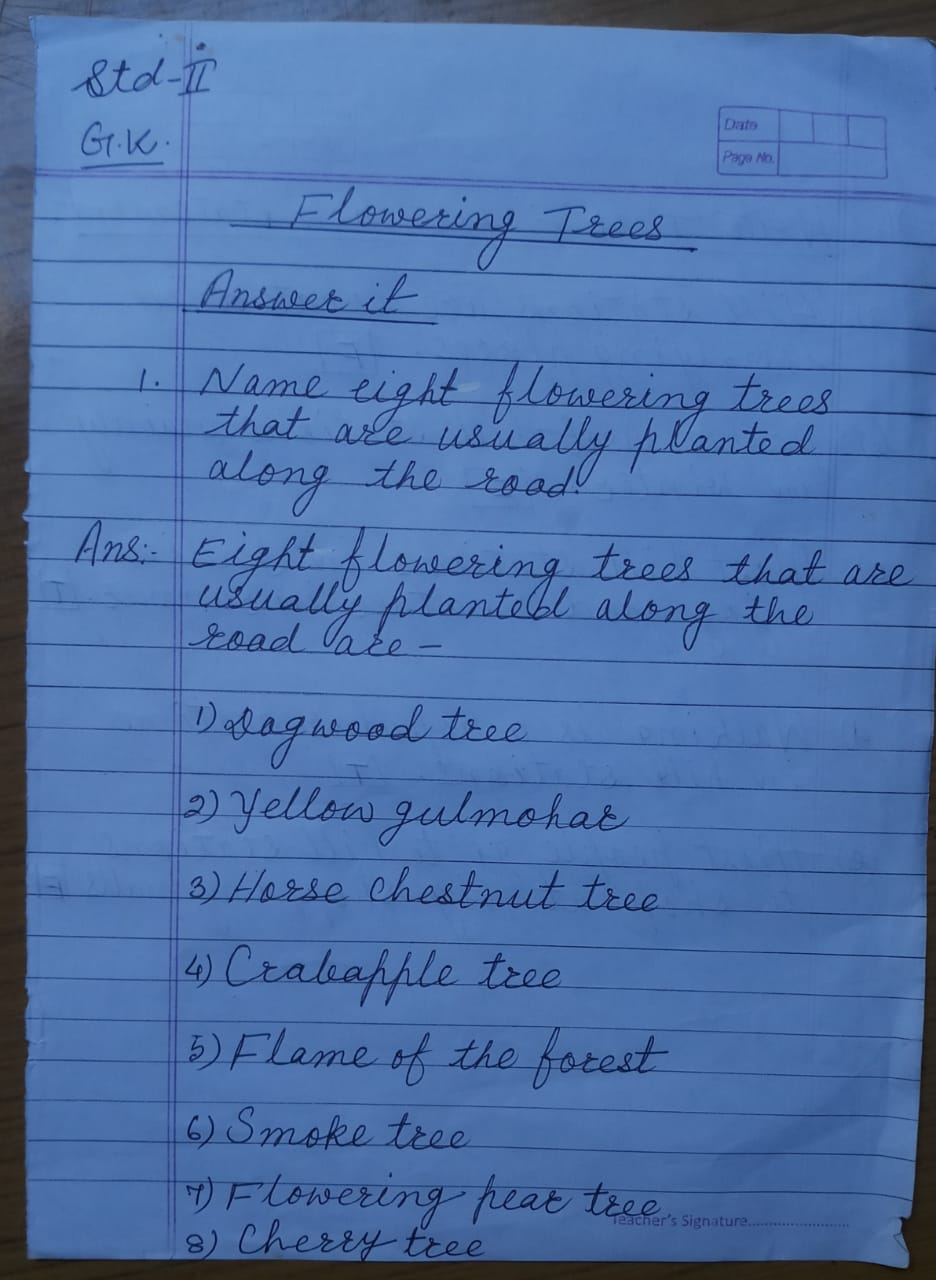 Std-II
G.K.
Date
Page No.
Flowering Trees
Answer it
1. Name eight flowering trees
that are usually planted
along the road.
Ans:- Eight flowering trees that are
usually planted along the
road are -
1) Dogwood tree
2) Yellow gulmohar
3) Horse chestnut tree
4) Crabapple tree
5) Flame of the forest
6) Smoke tree
7) Flowering pear tree
Teacher's Signature........................
8) Cherry tree